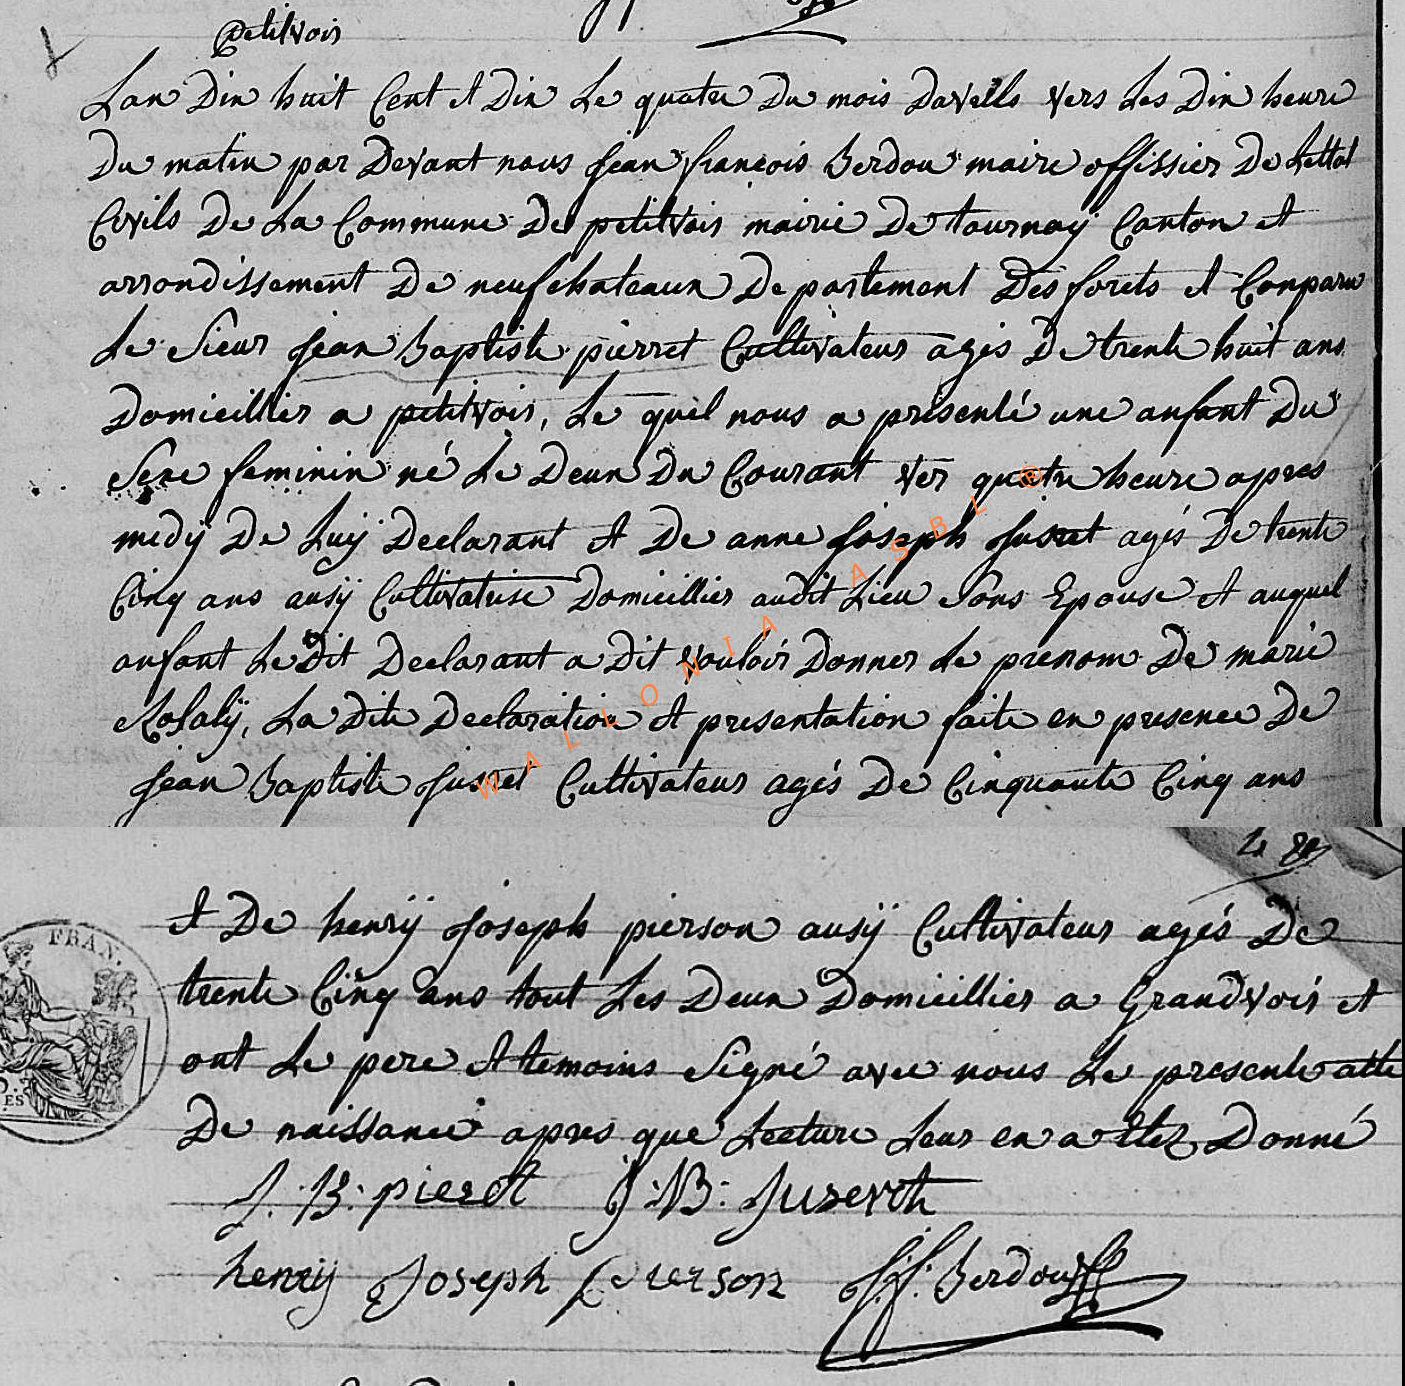 petitvoir
Lan Dix huit Cent et Dix Le quatre Du mois Davrills vers Les Dix heure
Du matin par Devant nous Jean françois Berdou maire offissier De Lettat
Civils De La Commune De petitvoir mairie De tournay Canton et
arrondissement De neufchateaux Departement Des forets et Conparu
Le Sieur Jean Baptiste pierret Cultivateur agés De trente huit ans
Domicillier a petitvoir, Le quel nous a présenté une anfant Du
Sexe feminin né Le Deux Du Courant ver quatre heure apres
medÿ De Luÿ Declarant et De anne Joseph Jusret agés De trente
Cinq ans ausÿ Cultivatrise Domicillier audit Lieu Sons Epouse et auquel
anfant Le Dit Declarant a Dit vouloir Donner Le prenom De marie
Rosalÿ, La Dite Declaration et presentation faite en presence De
Jean Baptiste Jusret Cultivateur agés De Cinquante Cinq ans
WALLONIA ASBL ©
et De henrÿ Joseph pierson ausÿ Cultivateur agés De
FRAN.
trente Cinq ans tout Les Deux Domicillier a Grandvoir et
ont Le pere et temoins Signé avec nous Le presente atte
De naissance apres que Lecture Leur en a Etez Donné
J. B. pieret J. B. Jusereth
henrÿ Joseph pierson J. f. Berdou